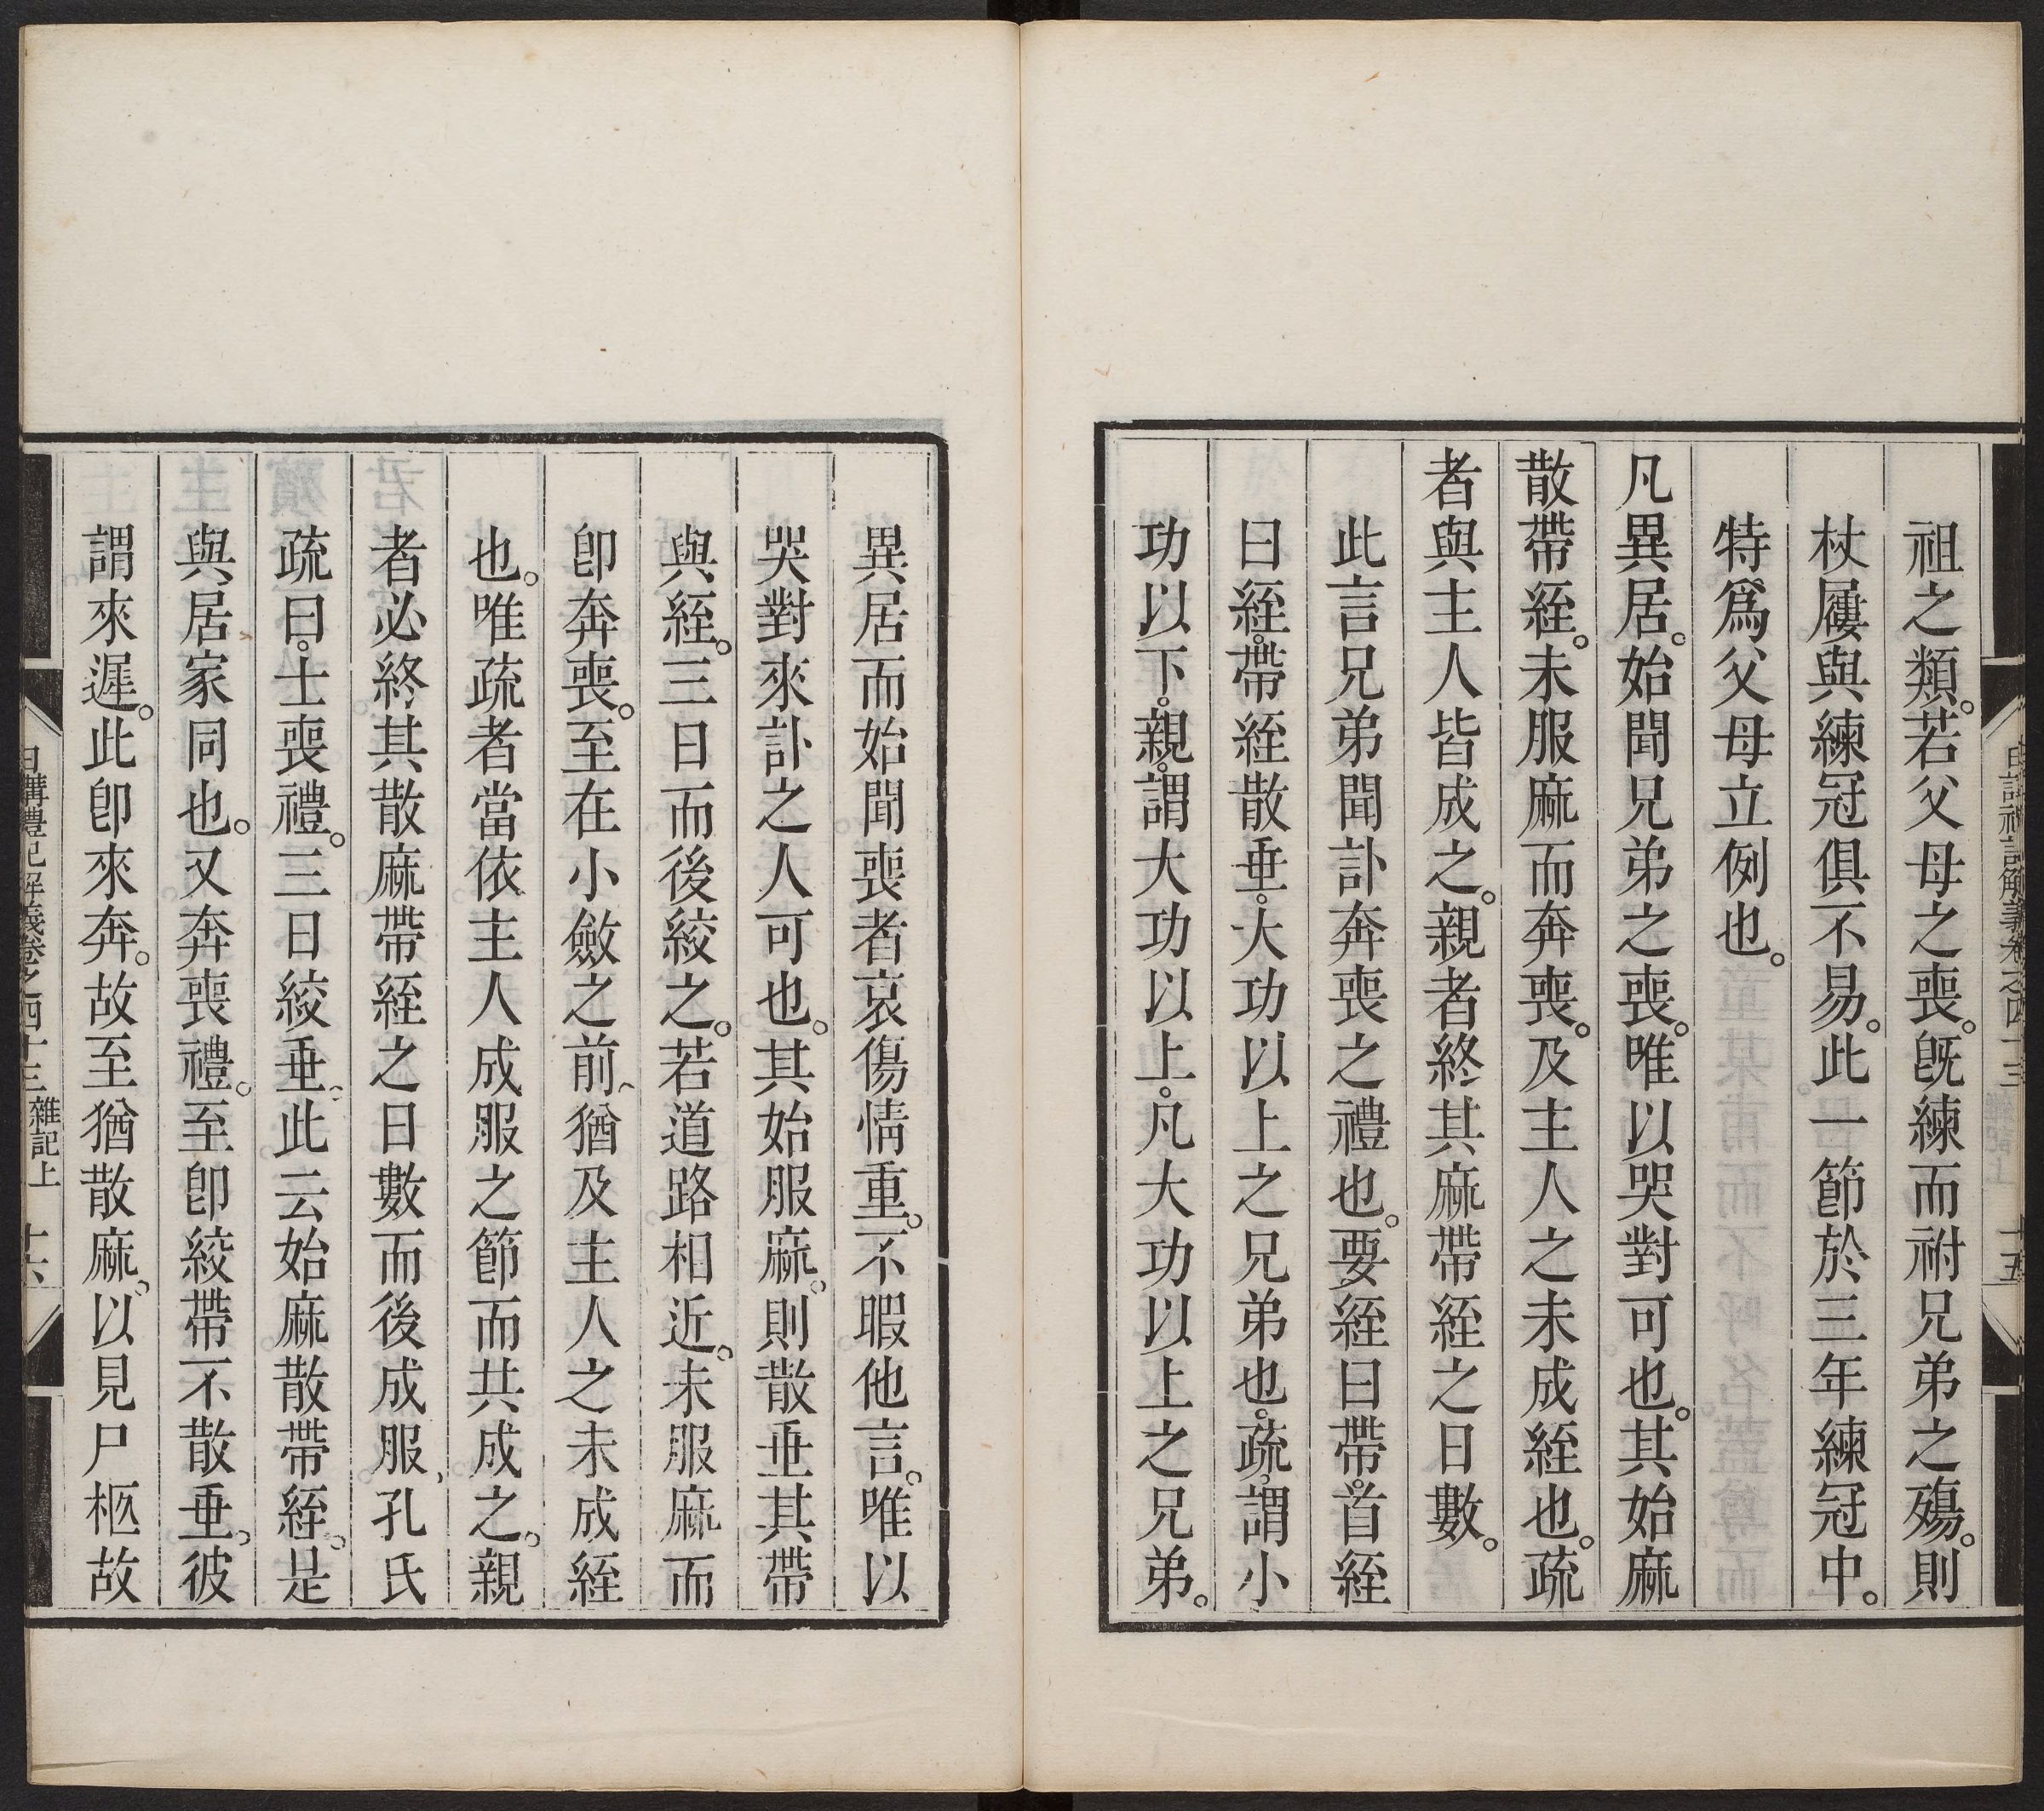 祖之類。若父母之喪。旣練而祔兄弟之殤。則
杖屨與練冠俱不易。此一節於三年練冠中。
特爲父母立例也。
凡異居。始聞兄弟之喪。唯以哭對可也。其始麻
散帶絰。未服麻而奔喪。及主人之未成絰也。疏
者與主人皆成之。親者終其麻帶絰之日數。
此言兄弟聞訃奔喪之禮也。要絰曰帶。首絰
曰絰。帶絰散垂。大功以上之兄弟也。疏。謂小
功以下。親。謂大功以上。凡大功以上之兄弟。
異居而始聞喪者哀傷情重。不暇他言。唯以
哭對來訃之人可也。其始服麻。則散垂其帶
與絰。三日而後絞之。若道路相近。未服麻而
卽奔喪。至在小斂之前、猶及主人之未成絰
也。唯疏者當依主人成服之節而共成之。親
者必終其散麻帶絰之日數而後成服、孔氏
疏曰。士喪禮。三日絞垂、此云始麻散帶絰。是
與居家同也。又奔喪禮。至卽絞帶不散垂。彼
謂來遲。此卽來奔。故至猶散麻、以見尸柩故
日講禮記解義卷之四十三 雜記上 十六